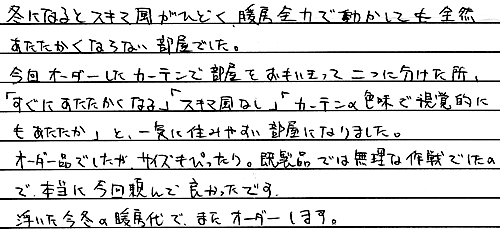 冬になるとスキマ風がひどく、暖房全力で動かしても全然
あたたかくならない部屋でした。
今回オーダーしたカーテンで部屋をおもいきって二つに分けた所、
「すぐにあたたかくなる」「スキマ風なし」「カーテンの色味で視覚的に
もあたたか」と、一気に住みやすい部屋になりました。
オーダー品でしたが、サイズもぴったり。既製品では無理な作戦でしたの
で、本当に今回頼んで良かったです。
浮いた今冬の暖房代で、またオーダーします。